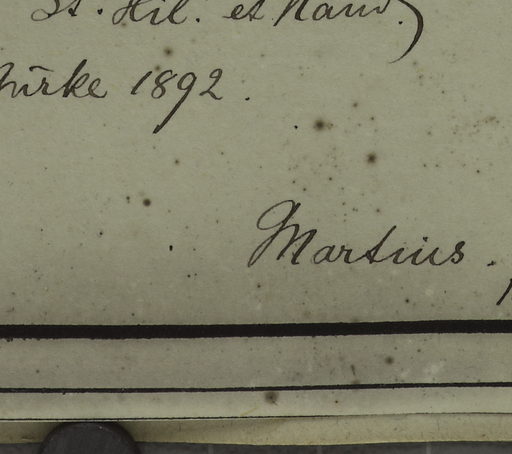 St. Hil. et Naud.)
Gürke 1892.
Martius.